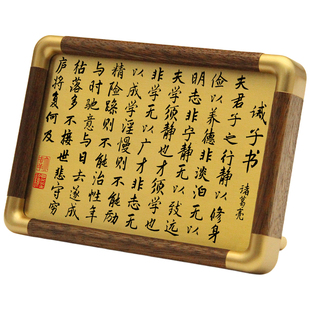 诫子书
诸葛亮
夫君子之行静以修身
俭以养德非淡泊无以
明志非宁静无以致远
夫学须静也才须学也
非学无以广才非志无
以成学淫慢则不能励
精险躁则不能治性年
与时驰意与日去遂成
枯落多不接世悲守穷
庐将复何及